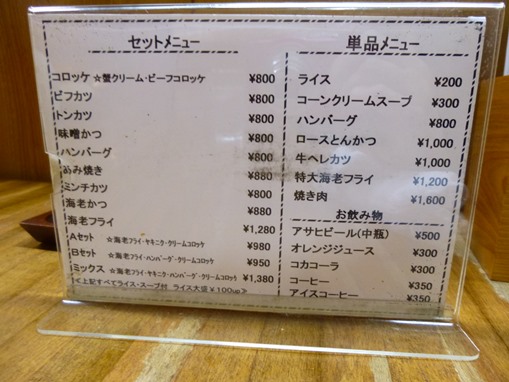 セットメニュー
コロッケ ☆蟹クリーム・ビーフコロッケ ¥800
ビフカツ ¥800
トンカツ ¥800
味噌かつ ¥800
ハンバーグ ¥800
あみ焼き ¥880
ミンチカツ ¥800
海老かつ ¥880
海老フライ ¥1,280
Aセット ☆海老フライ・ヤキニク・クリームコロッケ ¥980
Bセット ☆海老フライ・ハンバーグ・クリームコロッケ ¥950
ミックス ☆海老フライ・ヤキニク・ハンバーグ・クリームコロッケ ¥1,380
≪上記すべてライス・スープ付 ライス大盛¥100up≫
単品メニュー
ライス ¥200
コーンクリームスープ ¥300
ハンバーグ ¥800
ロースとんかつ ¥1,000
牛ヘレカツ ¥1,000
特大海老フライ ¥1,200
焼き肉 ¥1,600
お飲み物
アサヒビール(中瓶) ¥500
オレンジジュース ¥300
コカコーラ ¥300
コーヒー ¥350
アイスコーヒー ¥350